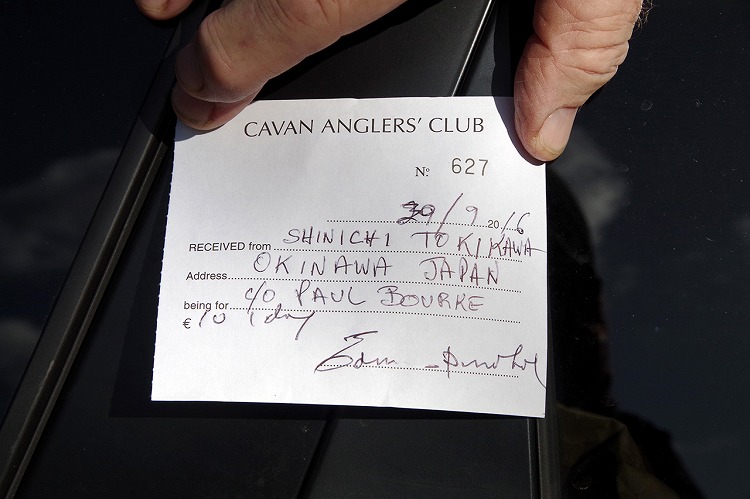 CAVAN ANGLERS' CLUB
Nº 627
29/9 2016
RECEIVED from SHINICHI TOKIKAWA
Address OKINAWA JAPAN
being for c/o PAUL BOURKE
€ 10 1 day